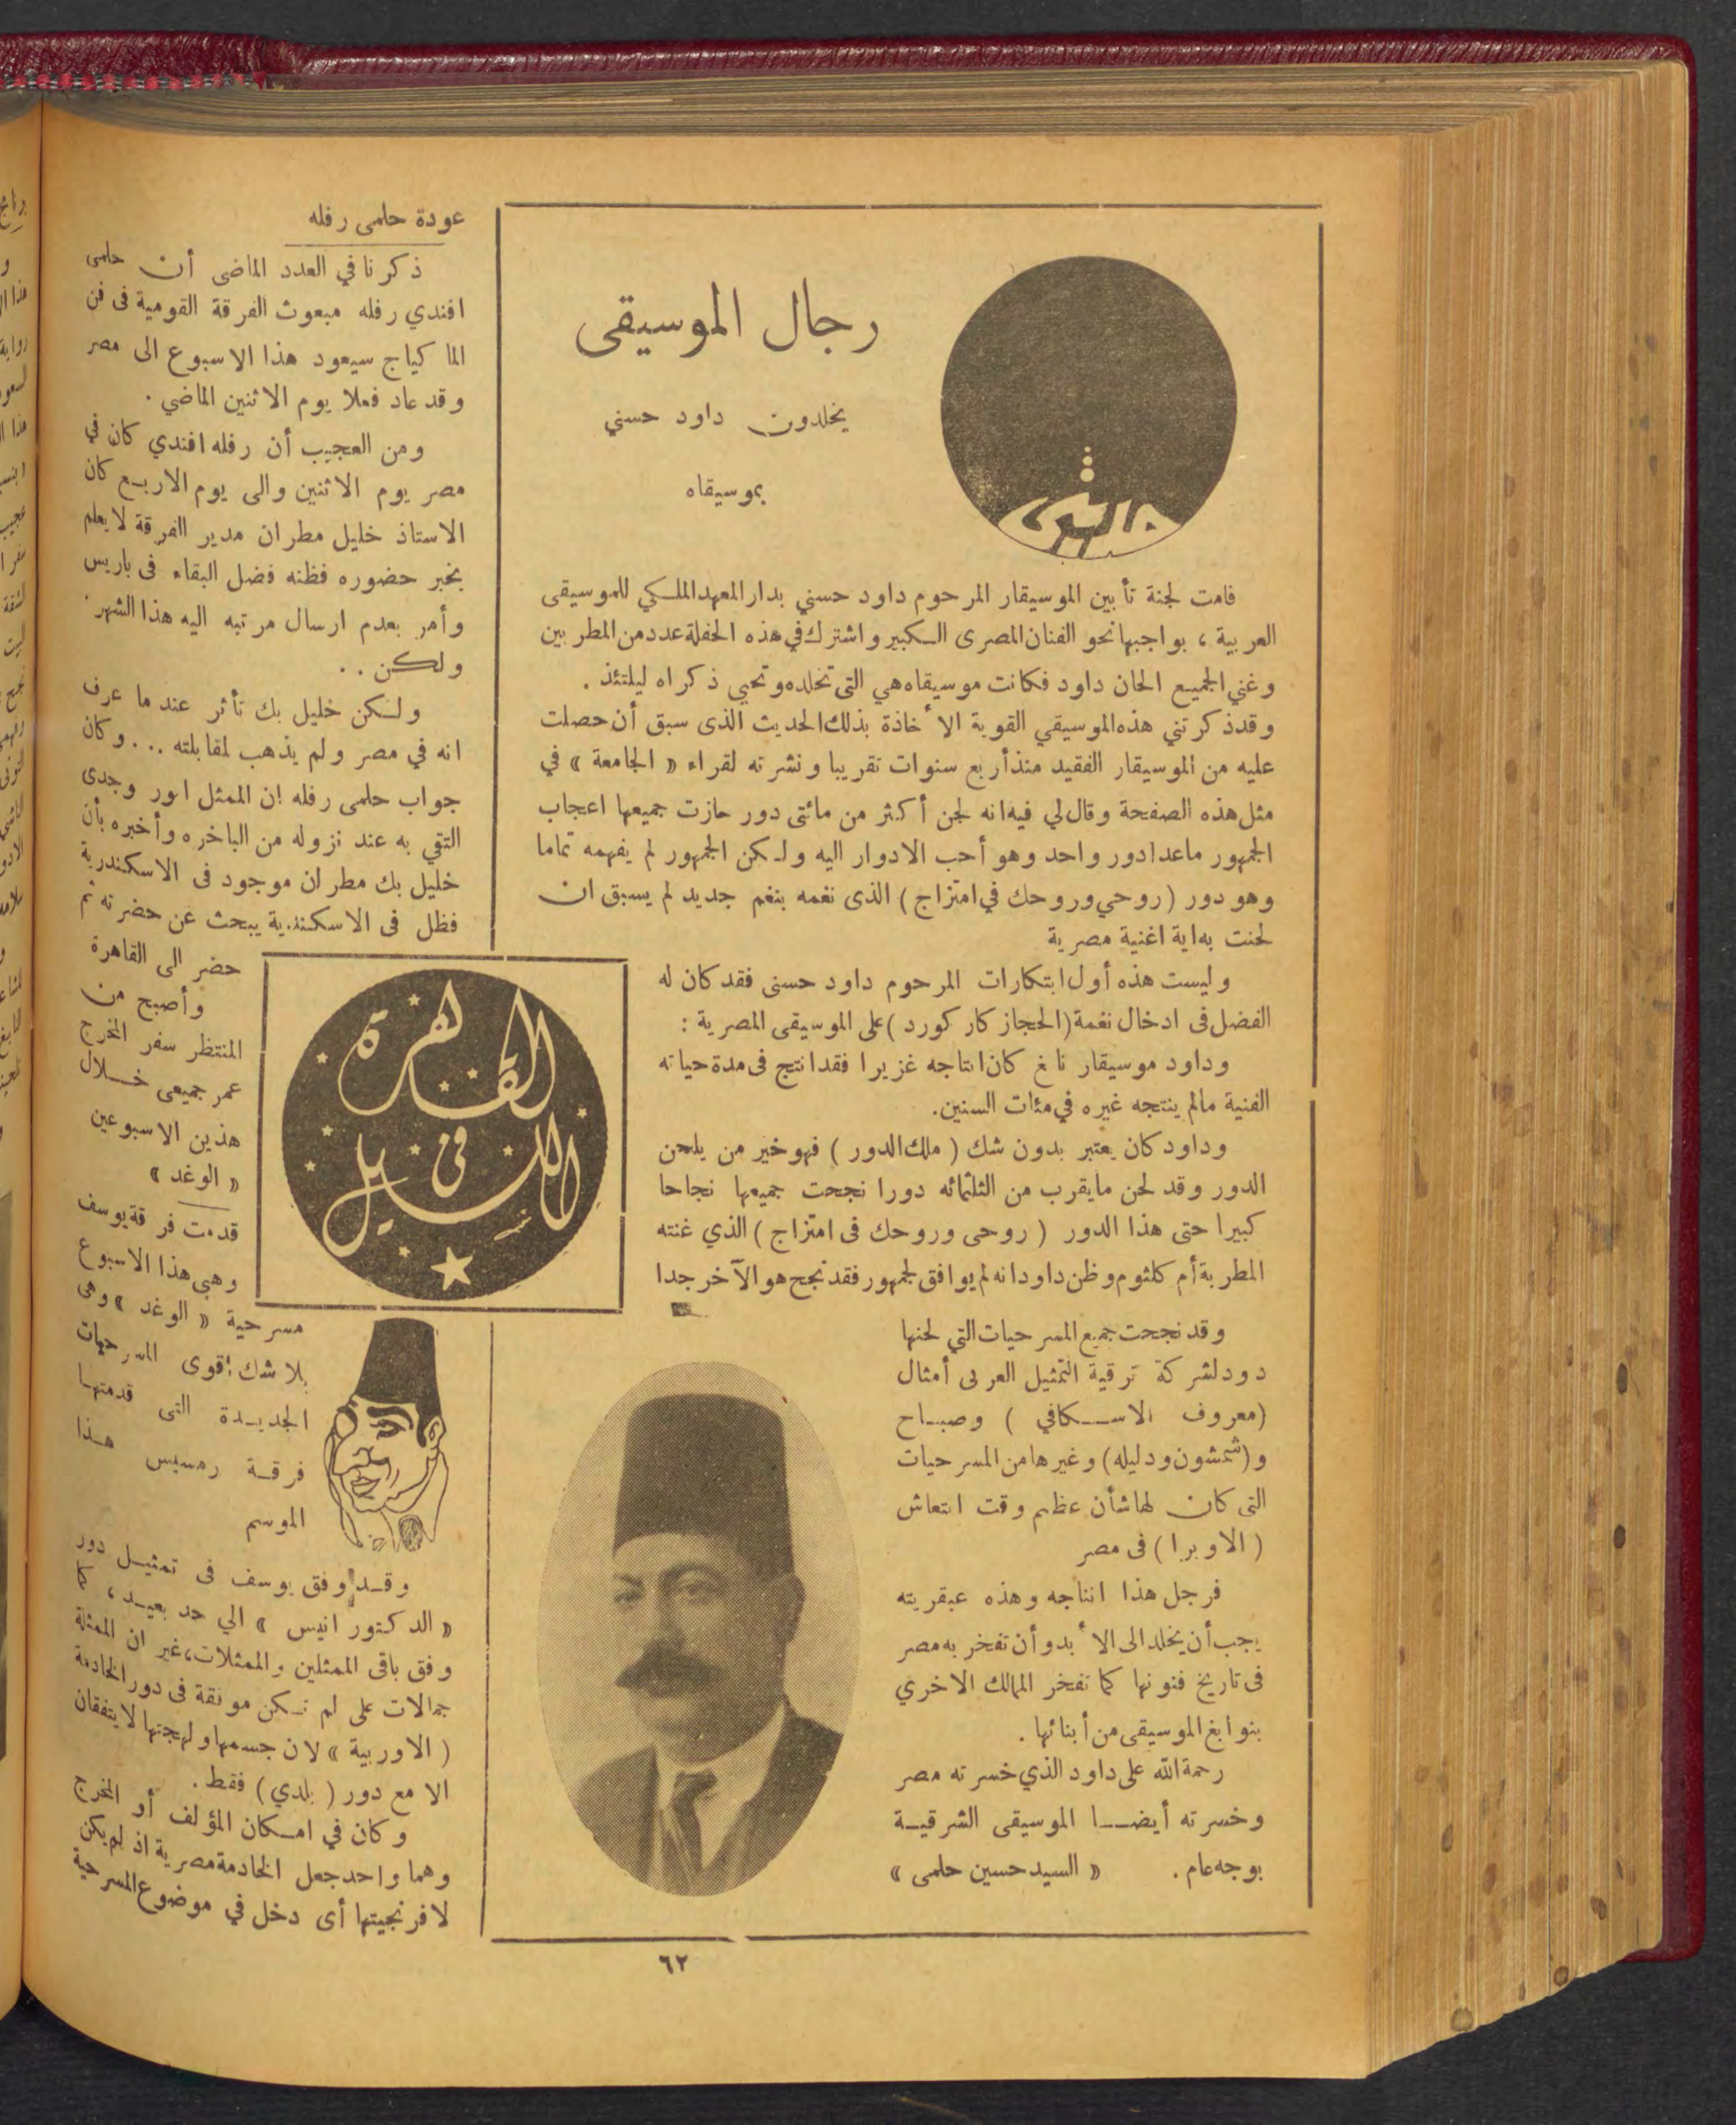 رجال الموسيقى
يخلدون داود حسني
بموسيقاه
قامت لجنة تأبين الموسيقار المرحوم داود حسني بدار المعهد الملكي للموسيقى
العربية ، بواجبها نحو الفنان المصرى الكبير واشترك في هذه الحفلة عدد من المطربين
وغني الجميع الحان داود فكانت موسيقاه هي التى تخلده وتحيي ذكراه ليلتئذ .
وقد ذكرتني هذه الموسيقي القوية الأخاذة بذلك الحديث الذى سبق أن حصلت
عليه من الموسيقار الفقيد منذ أربع سنوات تقريبا ونشرته لقراء « الجامعة » في
مثل هذه الصفحة وقال لي فيه انه لحن أكثر من مائتى دور حازت جميعها اعجاب
الجمهور ماعدا دور واحد وهو أحب الادوار اليه ولكن الجمهور لم يفهمه تماما
وهو دور ( روحي وروحك في امتزاج ) الذى نغمه بنغم جديد لم يسبق ان
لحنت به اية اغنية مصرية
وليست هذه أول ابتكارات المرحوم داود حسنى فقد كان له
الفضل فى ادخال نغمة ( الحجاز كار كورد ) على الموسيقى المصرية :
وداود موسيقار نابغ كان انتاجه غزيرا فقد انتج فى مدة حياته
الفنية مالم ينتجه غيره في مئات السنين .
وداود كان يعتبر بدون شك ( ملك الدور ) فهو خير من يلحن
الدور وقد لحن مايقرب من الثلثمائه دورا نجحت جميعها نجاحا
كبيرا حتى هذا الدور ( روحى وروحك فى امتزاج ) الذي غنته
المطربة أم كلثوم وظن داود انه لم يوافق لجمهور فقد نجح هو الآخر جدا
وقد نجحت جميع المسرحيات التي لحنها
دود لشركة ترقية التمثيل العربى أمثال
( معروف الاسكافي ) وصباح
و ( شمشون ودليله ) وغيرها من المسرحيات
التى كان لها شأن عظيم وقت انتعاش
( الاوبرا ) فى مصر
فرجل هذا انتاجه وهذه عبقريته
يجب أن يخلد الى الأبد وأن تفخر به مصر
فى تاريخ فنونها كما تفخر الممالك الاخري
بنوابغ الموسيقى من أبنائها .
رحمة الله على داود الذي خسرته مصر
وخسرته أيضا الموسيقى الشرقية
بوجه عام . « السيد حسين حلمى »
عودة حلمى رفله
ذكرنا في العدد الماضى أن حلمى
افندي رفله مبعوث الفرقة القومية فى فن
الماكياج سيعود هذا الاسبوع الى مصر
وقد عاد فعلا يوم الاثنين الماضي .
ومن العجيب أن رفله افندي كان في
مصر يوم الاثنين والى يوم الاربع كان
الاستاذ خليل مطران مدير الفرقة لا يعلم
بخبر حضوره فظنه فضل البقاء فى باريس
وأمر بعدم ارسال مرتبه اليه هذا الشهر .
ولكن . .
ولكن خليل بك تأثر عند ما عرف
انه في مصر ولم يذهب لمقابلته ... وكان
جواب حلمى رفله ان الممثل انور وجدى
التقي به عند نزوله من الباخره وأخبره بأن
خليل بك مطران موجود فى الاسكندرية
فظل فى الاسكندرية يبحث عن حضرته ثم
حضر الى القاهرة
وأصبح من
المنتظر سفر المخرج
عمر جميعى خلال
هذين الاسبوعين
القاهرة
فى
الليل
« الوغد »
قدمت فرقة يوسف
وهبى هذا الاسبوع
مسرحية « الوغد » وهى
بلا شك أقوى المسرحيات
الجديدة التى قدمتها
فرقة رمسيس هذا
الموسم
وقد وفق يوسف فى تمثيل دور
« الدكتور انيس » الي حد بعيد ، كما
وفق باقى الممثلين والممثلات ، غير ان الممثلة
جمالات على لم تكن موفقة فى دور الخادمة
( الاوربية » لان جسمها ولهجتها لا يتفقان
الا مع دور ( بلدي ) فقط .
وكان في امكان المؤلف أو المخرج
وهما واحد جعل الخادمة مصرية اذ لم يكن
لافرنجيتها أى دخل في موضوع المسرحية
٦٢